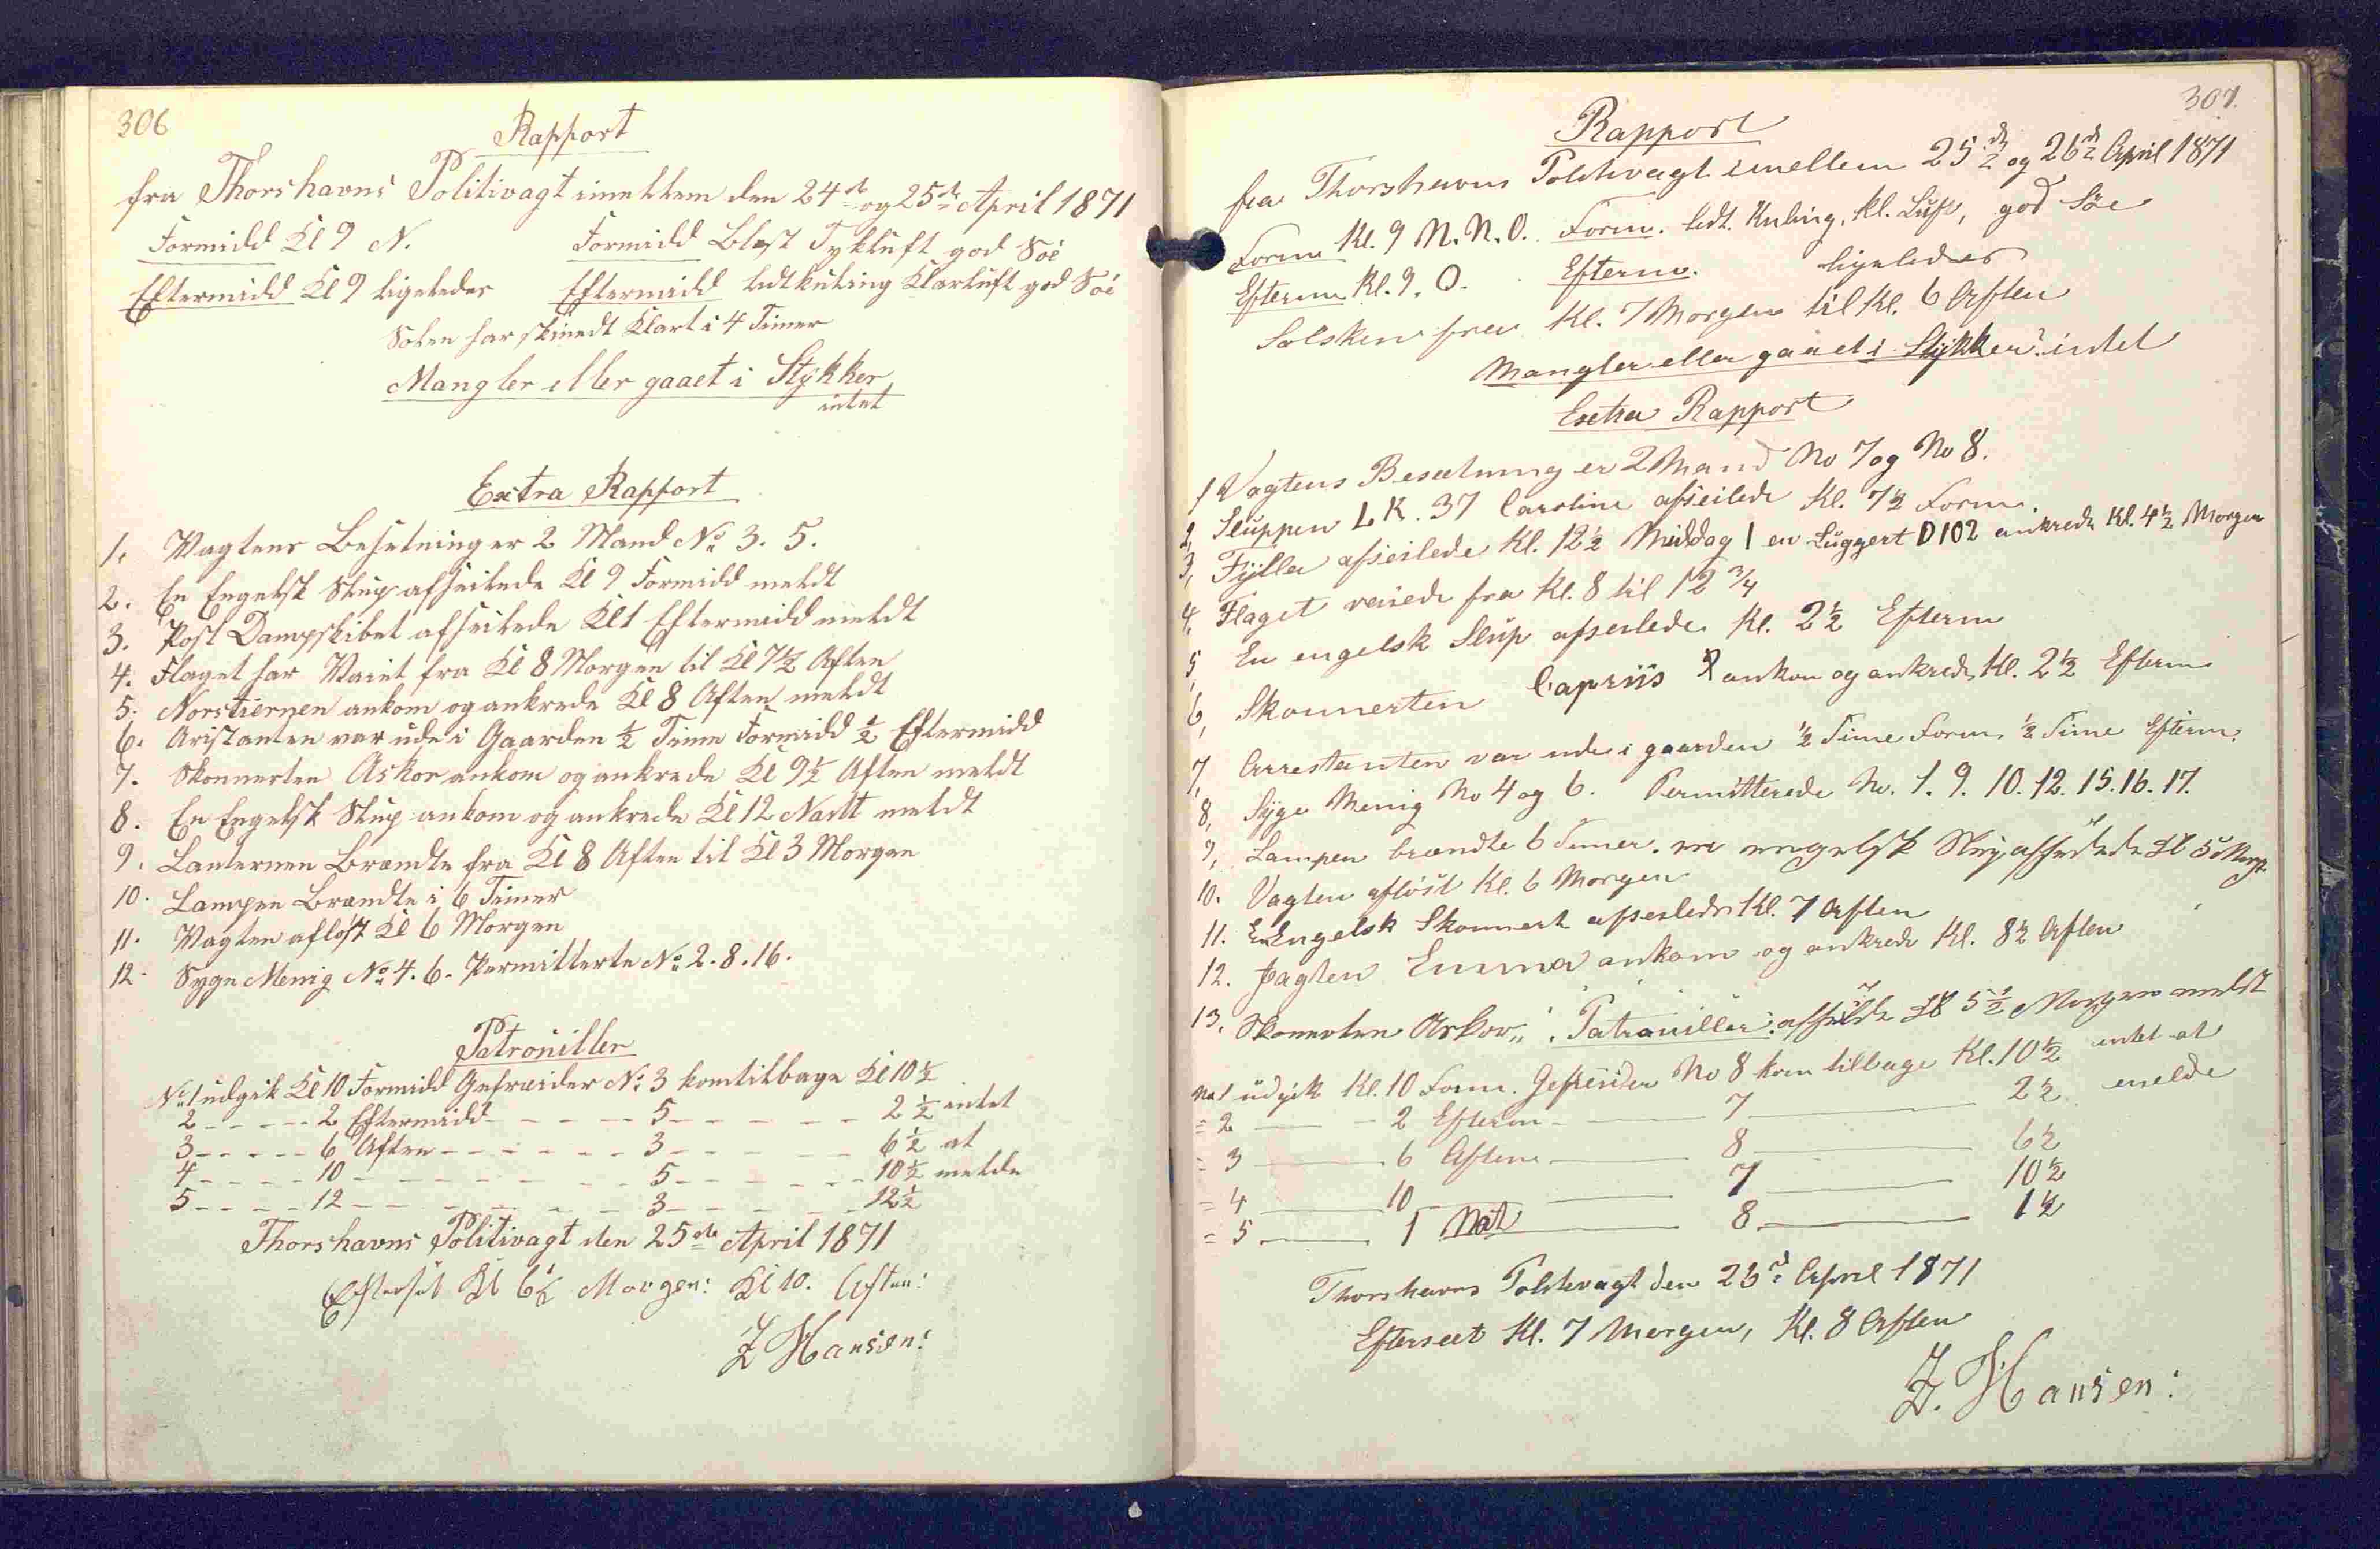 306
Rapport
fra Thorshavns Politivagt imellem den 24de og 25de April 1871
Formidd Kl 9 N. Formidd Blæst Tykluft god Söe
Eftermidd Kl 9 ligeledes Eftermidd ludtkuling Klarluft god Söe
Solen har skinedt Klart i 4 Timer
Mangler eller gaaet i Stÿkker
intet
Extra Rapport
1. Vagtens Besetning er 2 Mand No 3. 5.
2. En Engelsk Slup afseilede Kl 9 Formidd meldt
3. Post Dampskibet afseilede Kl 1 Eftermidd meldt
4. Flaget har Vaiet fra Kl 8 Morgen til Kl 7 1/2 Aften
5. Norstiernen ankom og ankrede Kl 8 Aften meldt
6. Aristanten var ude i Gaarden 1/2 Time Formidd 1/2 Eftermidd
7. Skonnerten Askor ankom og ankrede Kl 9 1/2 Aften meldt
8. En Engelsk Slup ankom og ankrede Kl 12 Natt meldt
9. Lanternen Brændte fra Kl 8 Aften til Kl 3 Morgen
10. Lampen Brændte i 6 Timer
11. Vagten afløst Kl 6 Morgen
12. Syge Menig No 4. 6. Permitterte No 2. 8. 16.
Patrouiller
No 1 udgik Kl 10 Formidd Gefreider No 3 kom tilbage Kl 10 1/2
2 - - - - - 2 Eftermidd - - - - 5 - - - - - 2 1/2 intet
3 - - - - - 6 Aften - - - - - - 3 - - - - - 6 1/2 at
4 - - - - - 10 - - - - - - - - 5 - - - - - 10 1/2 melde
5 - - - - 12 - - - - - - - - 3 - - - - - 12 1/2
Thorshavns Politivagt den 25de April 1871
Efterset Kl 6 1/2 Morgen: Kl 10. Aften:
Z Hansen:
307.
Rapport
fra Thorshavns Politivagt imellem 25d og 26d April 1871
Form Kl. 9 N. N. O. Form. ludt. Kuling, kl. Luft, god Söe
Efterm Kl. 9. O. Efterm. ligeledes
Solsken fra Kl. 7 Morgen til Kl. 6 Aften
Mangler eller gaaet i Stÿkker: intet
Exstra Rapport
1 Vagtens Besætning er 2 Mand No 7 og No 8.
2, Sluppen L K. 37 Caroline afseilede Kl. 7 1/2 Form.
3, Fÿlla afseilede Kl. 12 1/2 Middag 1 en Luggert D 102 ankrede Kl. 4 1/2 Morgen
4, Flaget veiede fra Kl. 8 til 12 3/4
5, En engelsk Slup afseilede Kl. 2 1/2 Efterm
6, Skonnerten Capriis ankom og ankrede Kl. 2 1/2 Efterm
7, Arrestanten var ude i gaarden 1/2 Time Form. 1/2 Time Efterm.
8, Sÿge Menig No 4 og 6. Permitterede No. 1. 9. 10. 12. 15. 16. 17.
9, Lampen brændte 6 Timer. en engelsk Slup afseilede Kl 5 Morg
10. Vagten afløst Kl. 6 Morgen
11. En Engelsk Skonnert afseilede Kl. 7 Aften
12. Jagten Emma ankom og ankrede Kl. 8 1/2 Aften
13. Skonnerten Askor,, Patrouiller: afseilede Kl 5 1/2 Morgen meldt
No 1 udgik Kl. 10 Form. Gefreider No 8 kom tilbage Kl. 10 1/2 intet at
= 2 — 2 Efterm — 7 — 2 1/2 melde
= 3 — 6 Aften — 8 — 6 1/2
= 4 — 10 — 7 — 10 1/2
= 5 — 1 Nat — 8 — 1 1/2
Thorshavns Politivagt den 26d April 1871
Efterseet Kl. 7 Morgen, Kl. 8 Aften
Z. Hansen: